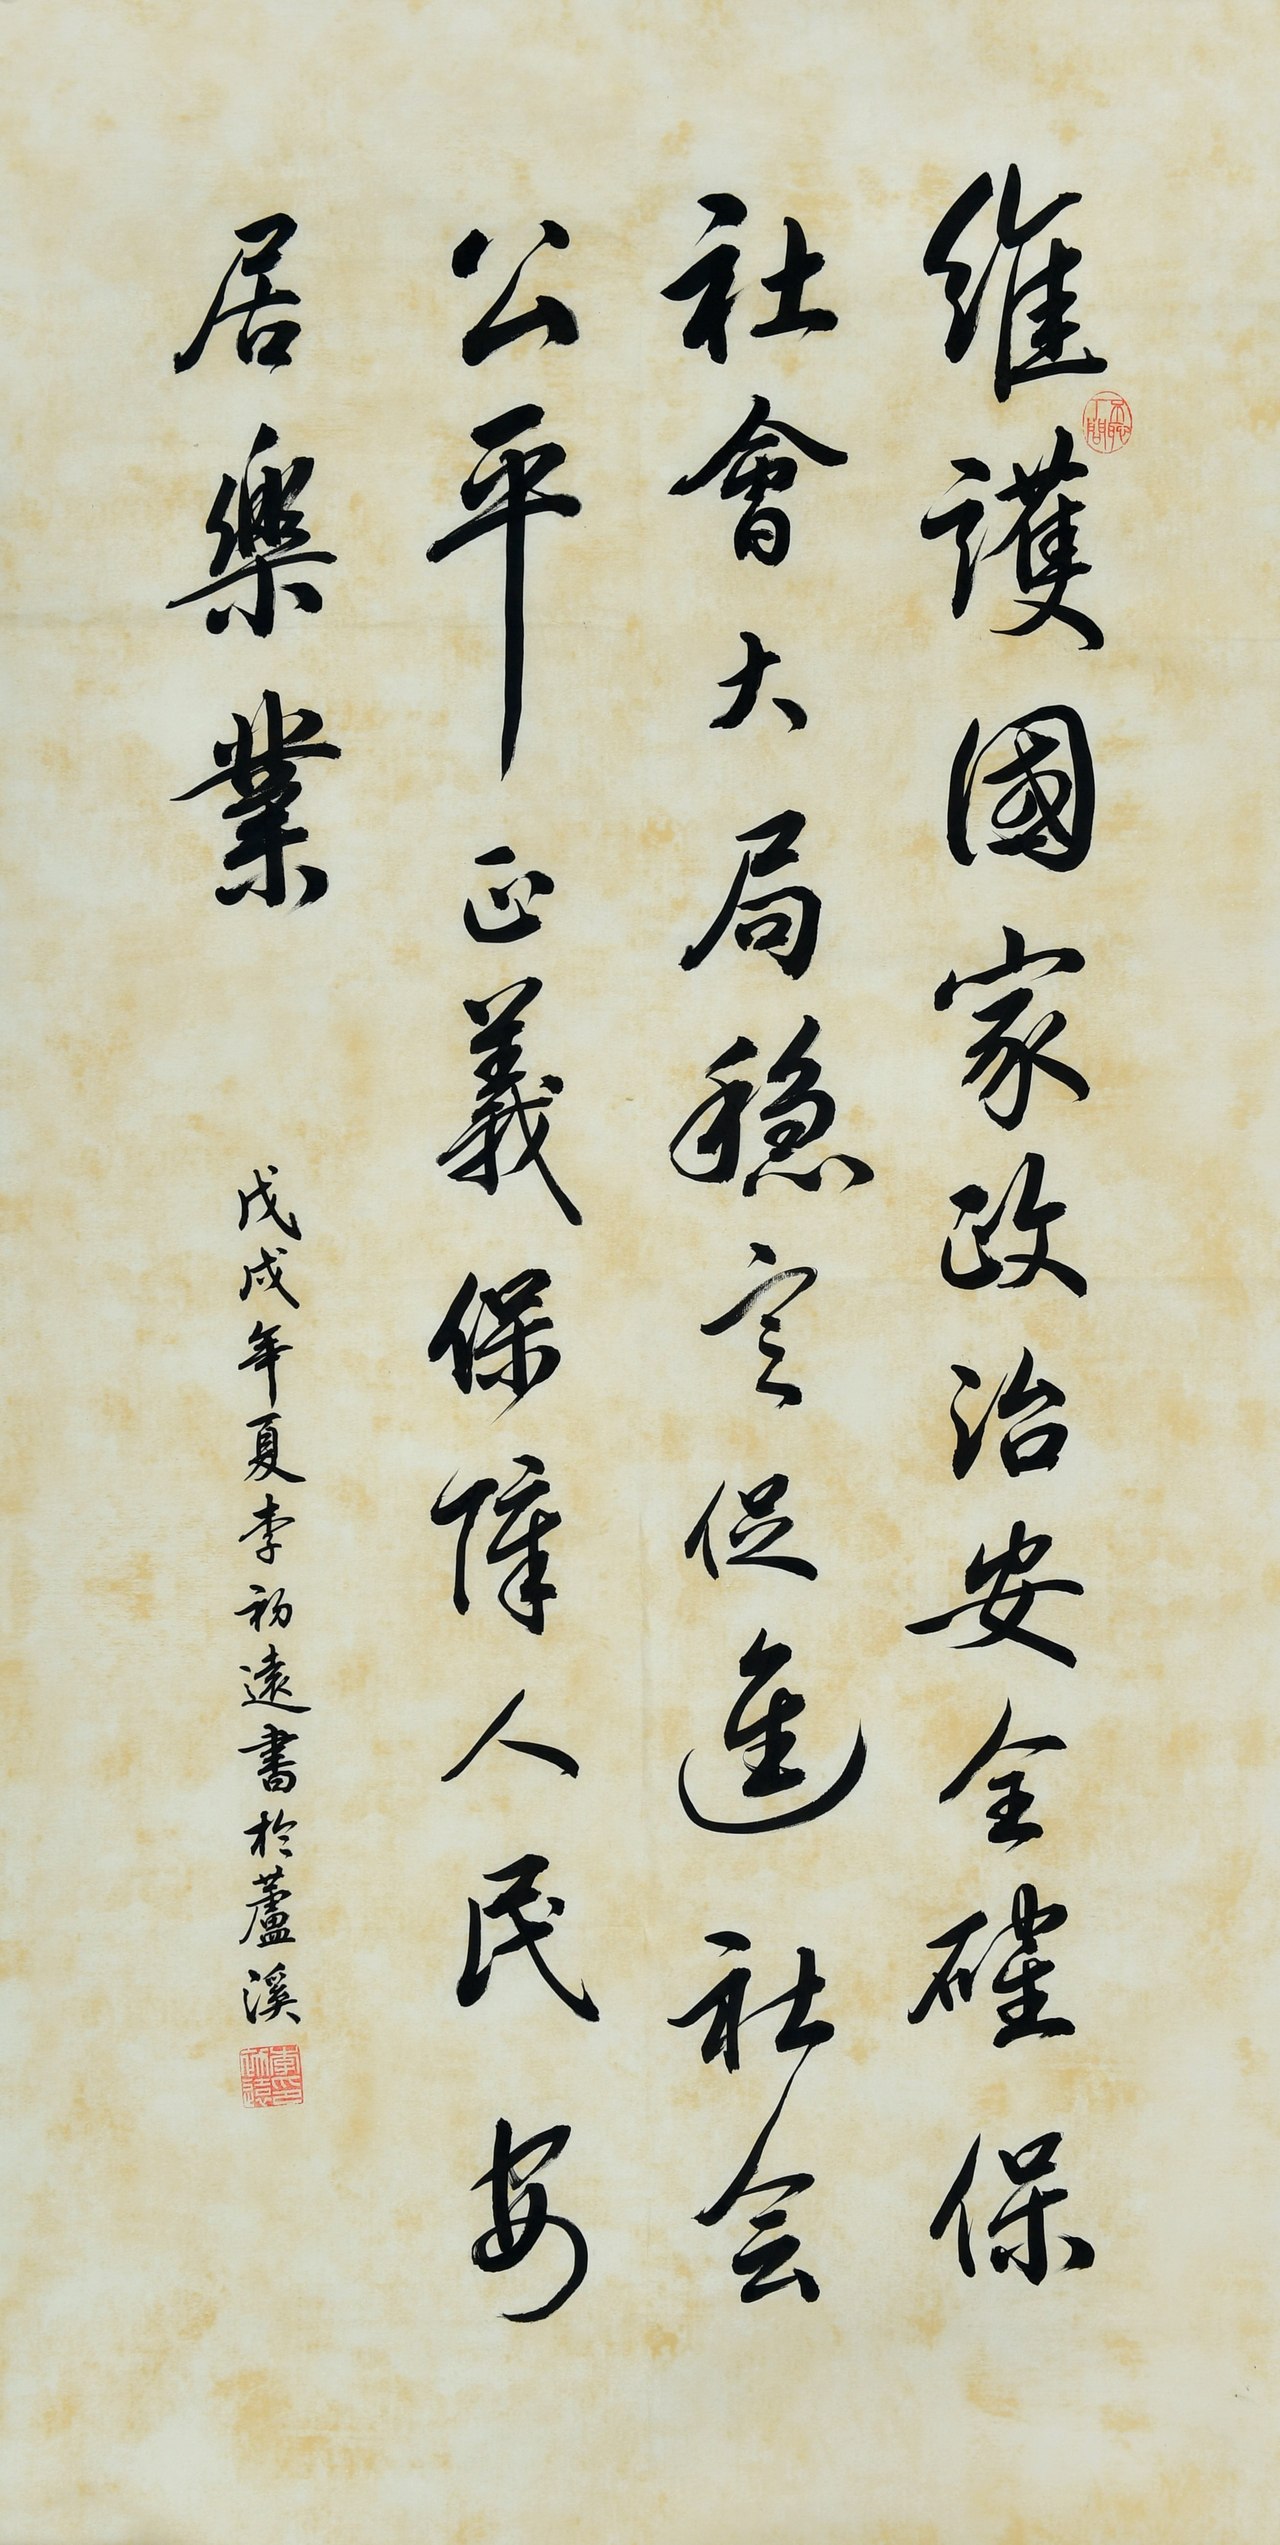 維護國家政治安全確保
社會大局穩定促進社会
公平正義保障人民安
居樂業
戊戌年夏李初遠書於蘆溪